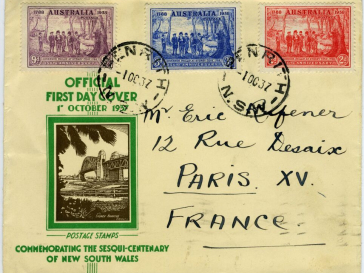 1788 AUSTRALIA 1938
9D
1788 AUSTRALIA 1938
1788 AUSTRALIA 1938
2D
PENRITH
1 OC 37
N.S.W
PENRITH
1 OC 37
N.S.W
OFFICIAL
FIRST DAY COVER
1ST OCTOBER 1937
Mr Eric
12 Rue Desaix
PARIS XV.
FRANCE.
POSTAGE STAMPS
COMMEMORATING THE SESQUI-CENTENARY
OF NEW SOUTH WALES